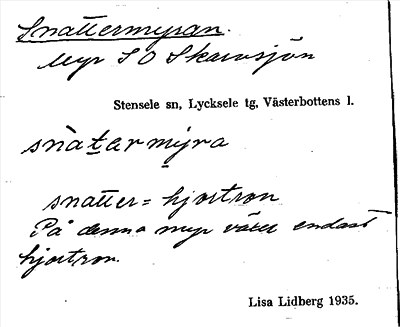 Snattermyran.
Myr S O Skarvsjön
Stensele sn, Lycksele tg, Västerbottens l.
snàt̲army̲ra
snatter = hjortron
På denna myr växer endast
hjortron.
Lisa Lidberg 1935.